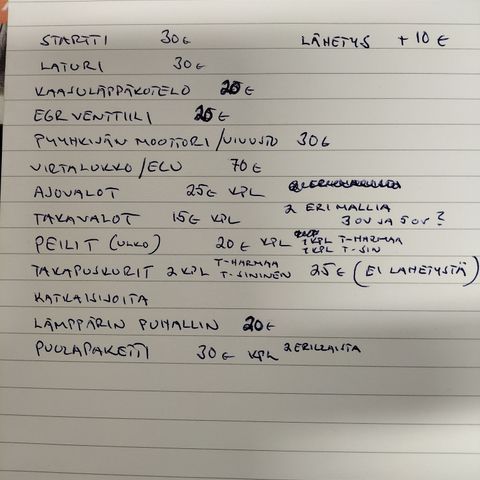 STARTTI 30€ LÄHETYS +10 €
LATURI 30€
KAASULÄPPÄKOTELO 25€
EGR VENTTIILI 25€
PYYHKIJÄN MOOTTORI/VIVUSTO 30€
VIRTALUKKO/ECU 70€
AJOVALOT 25€ KPL
TAKAVALOT 15€ KPL 2 ERI MALLIA
3 OV JA 5 OV?
PEILIT (ULKO) 20€ KPL 1 KPL T-HARMAA
1 KPL T-SIN
TAKAPUSKURIT 2 KPL T-HARMAA
T-SININEN 25€ (EI LÄHETYSTÄ)
KATKAISIJOITA
LÄMPPÄRIN PUHALLIN 20€
PUOLAPAKETTI 30€ KPL 2 ERILLAISTA